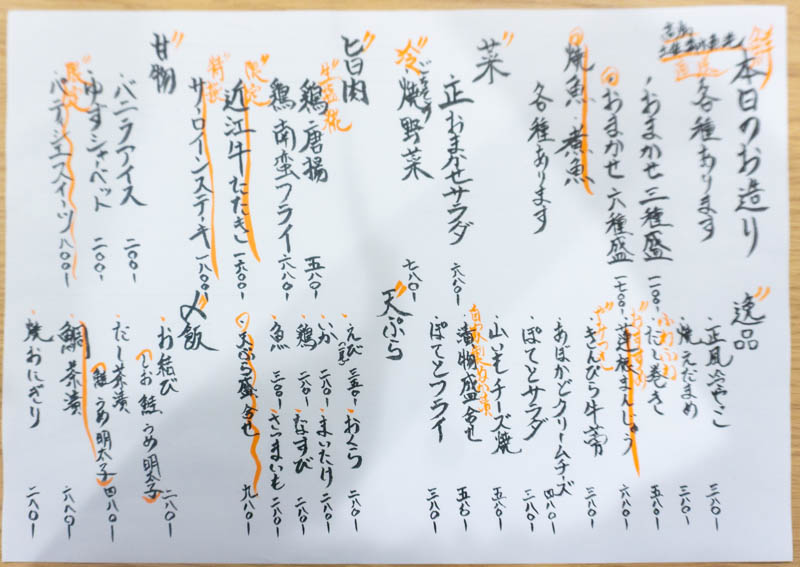 本日のお造り
各種あります
おまかせ三種盛 一一〇〇
おまかせ六種盛 一七〇〇
焼魚 煮魚
各種あります
菜
正おまかせサラダ 六八〇
冷 焼野菜 七八〇
旨肉
鶏唐揚 五八〇
鶏南蛮フライ 六八〇
限定
近江牛たたき 一六〇〇
特撰
サーロインステーキ 一八〇〇
甘物
バニラアイス 二〇〇
ゆずシャーベット 二〇〇
限定
パティシエスイーツ 八〇〇
逸品
正風冷やっこ 三八〇
焼えだまめ 三八〇
ふわふわ
だし巻き 五八〇
おすすめ
蓮根まんじゅう 六八〇
やみつき
きんぴら牛蒡 三八〇
あぼかどクリームチーズ 四八〇
ぽてとサラダ 三八〇
山いもチーズ焼 五八〇
漬物盛合せ 五八〇
ぽてとフライ 三八〇
天ぷら
えび 三五〇
おくら 二八〇
いか 二八〇
まいたけ 二八〇
鶏 二八〇
なすび 二八〇
魚 三〇〇
さつまいも 二八〇
天ぷら盛合せ 九八〇
〆飯
お結び
しお 鮭 うめ 明太子 二八〇
だし茶漬
鮭 うめ 明太子 四八〇
鯛茶漬 六八〇
焼おにぎり 二八〇